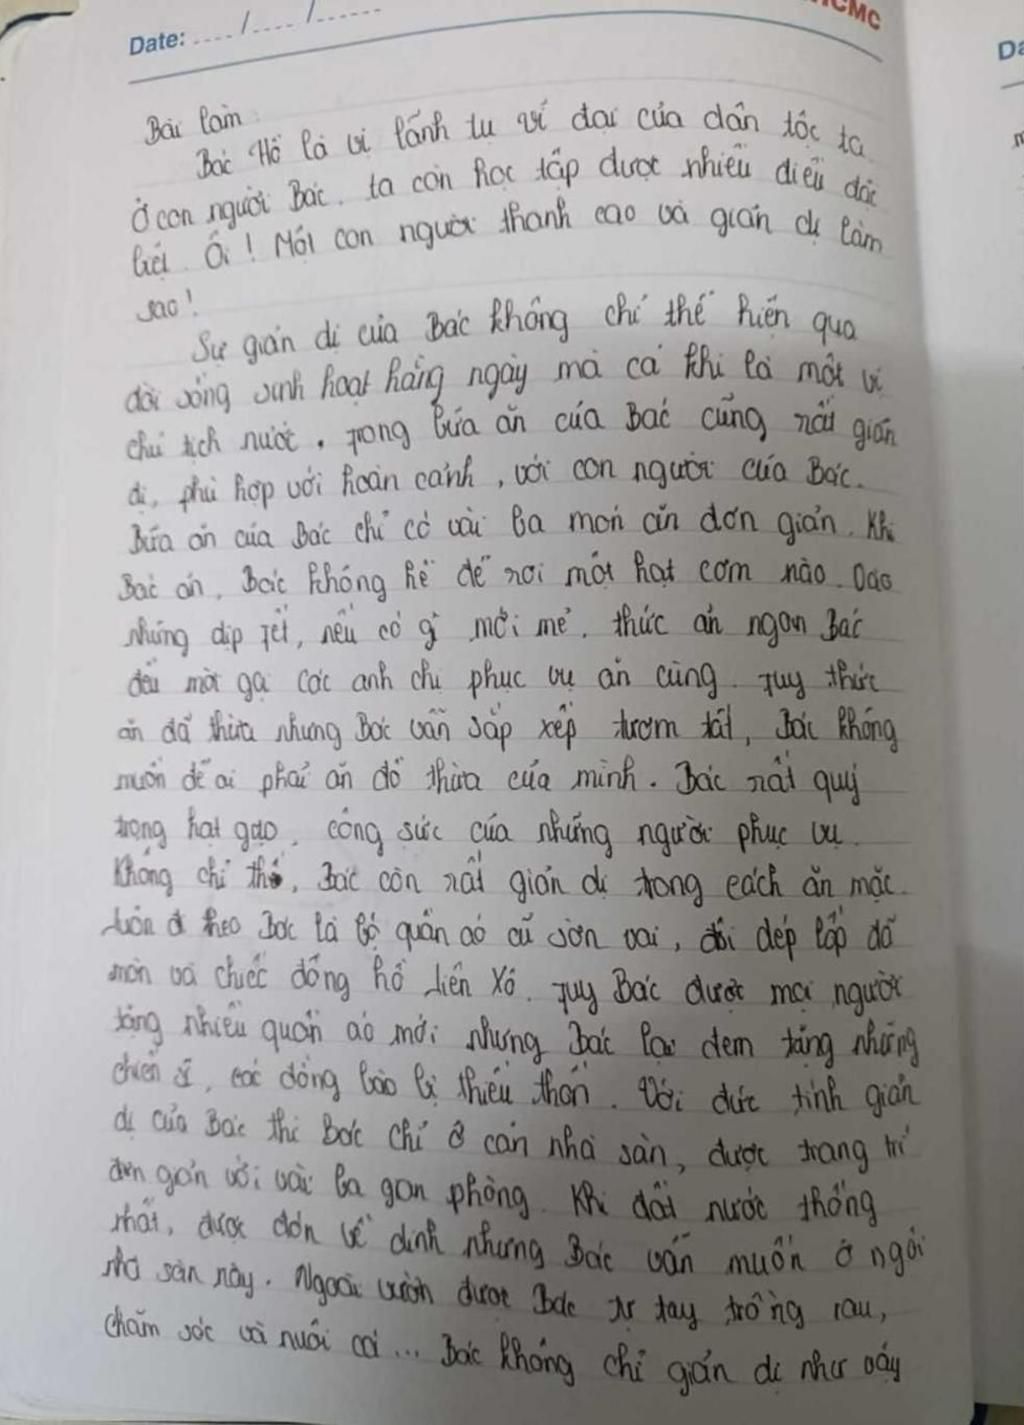 HCMC
Date: ..../..../......
Da
Bài làm:
Bác Hồ là vị lãnh tụ vĩ đại của dân tộc ta.
Ở con người Bác, ta còn học tập được nhiều điều đặc
biệt. Ôi! Một con người thanh cao và giản dị làm
sao!
Sự giản dị của Bác không chỉ thể hiện qua
đời sống sinh hoạt hằng ngày mà cả khi là một vị
chủ tịch nước. Trong bữa ăn của Bác cũng rất giản
dị, phù hợp với hoàn cảnh, với con người của Bác.
Bữa ăn của Bác chỉ có vài ba món ăn đơn giản. Khi
Bác ăn, Bác không hề để rơi một hạt cơm nào. Vào
những dịp Tết, nếu có gì mới mẻ, thức ăn ngon Bác
đều mời gọi các anh chị phục vụ ăn cùng. Tuy thức
ăn đã thừa nhưng Bác vẫn sắp xếp tươm tất, Bác không
muốn để ai phải ăn đồ thừa của mình. Bác rất quý
trọng hạt gạo, công sức của những người phục vụ.
Không chỉ thế, Bác còn rất giản dị trong cách ăn mặc.
Luôn đi theo Bác là bộ quần áo cũ sờn vai, đôi dép lốp đã
mòn và chiếc đồng hồ Liên Xô. Tuy Bác được mọi người
tặng nhiều quần áo mới nhưng Bác lại đem tặng những
chiến sĩ, các đồng bào bị thiếu thốn. Với đức tính giản
dị của Bác thì Bác chỉ ở căn nhà sàn, được trang trí
đơn giản với vài ba gan phòng. Khi đất nước thống
nhất, được đón về dinh nhưng Bác vẫn muốn ở ngôi
nhà sàn này. Ngoài vườn được Bác tự tay trồng rau,
chăm sóc và nuôi cá... Bác không chỉ giản dị như vậy